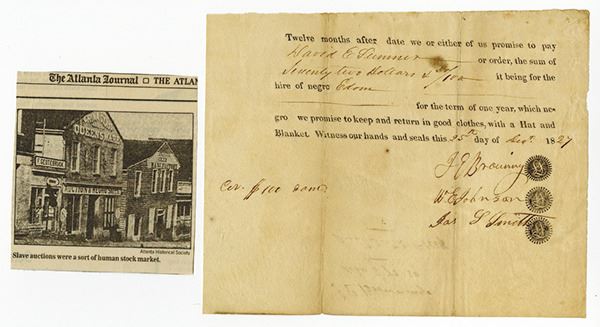 The Atlanta Journal □ THE ATLAN
QUEENSWARE
AUCTION & NEGRO SALES
Atlanta Historical Society
Slave auctions were a sort of human stock market.
Twelve months after date we or either of us promise to pay
David E Sumner or order, the sum of
Seventy two Dollars & /100 it being for the
hire of negro Edom
for the term of one year, which ne-
gro we promise to keep and return in good clothes, with a Hat and
Blanket. Witness our hands and seals this 25th day of Decr. 1827
J E Browning
W E Johnson
Jas S Smith